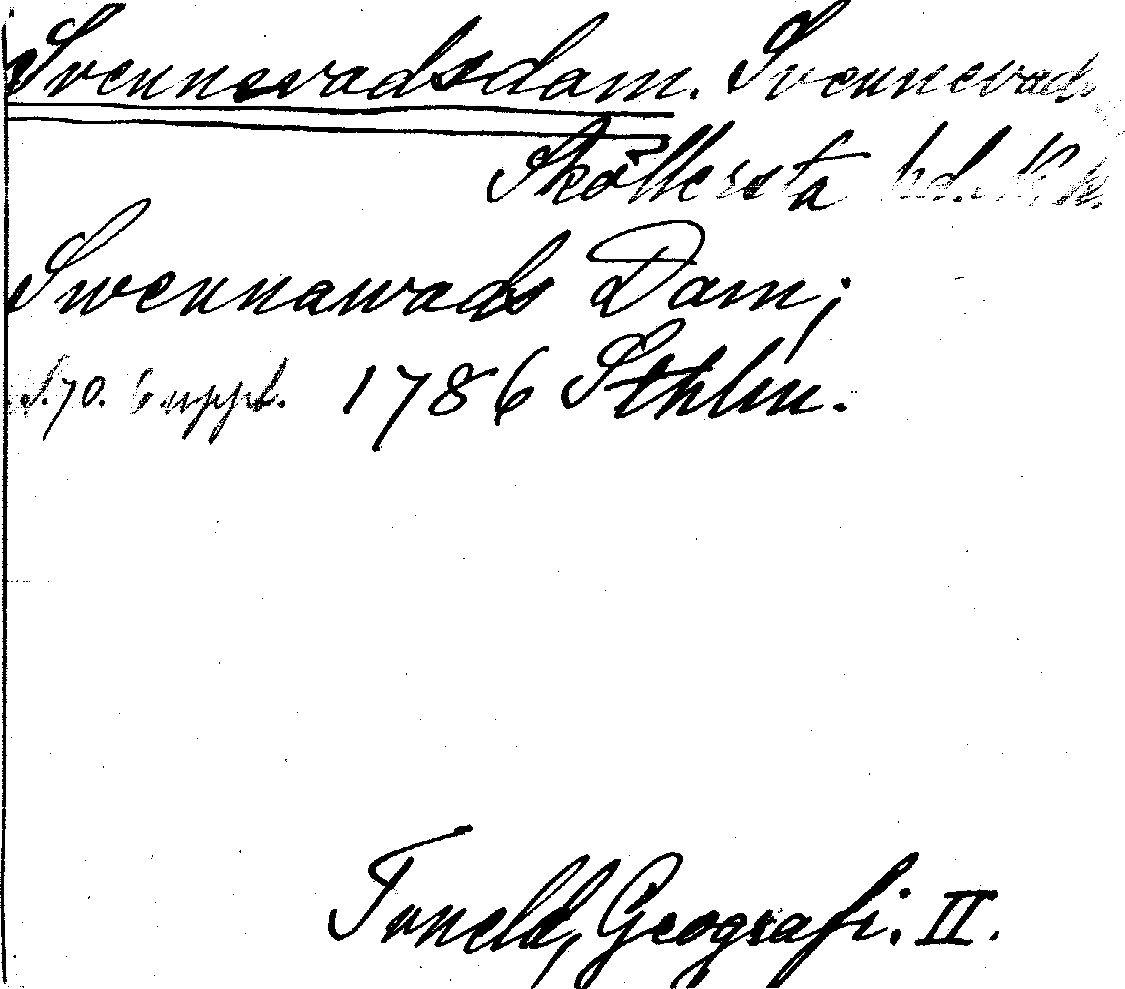 Svennevadsdam. Svennevads
Sköllersta hd. Nke.
Swennawads Dam;
S. 70. 6 uppl. 1786 Sthlm.
Tuneld, Geografi. II.